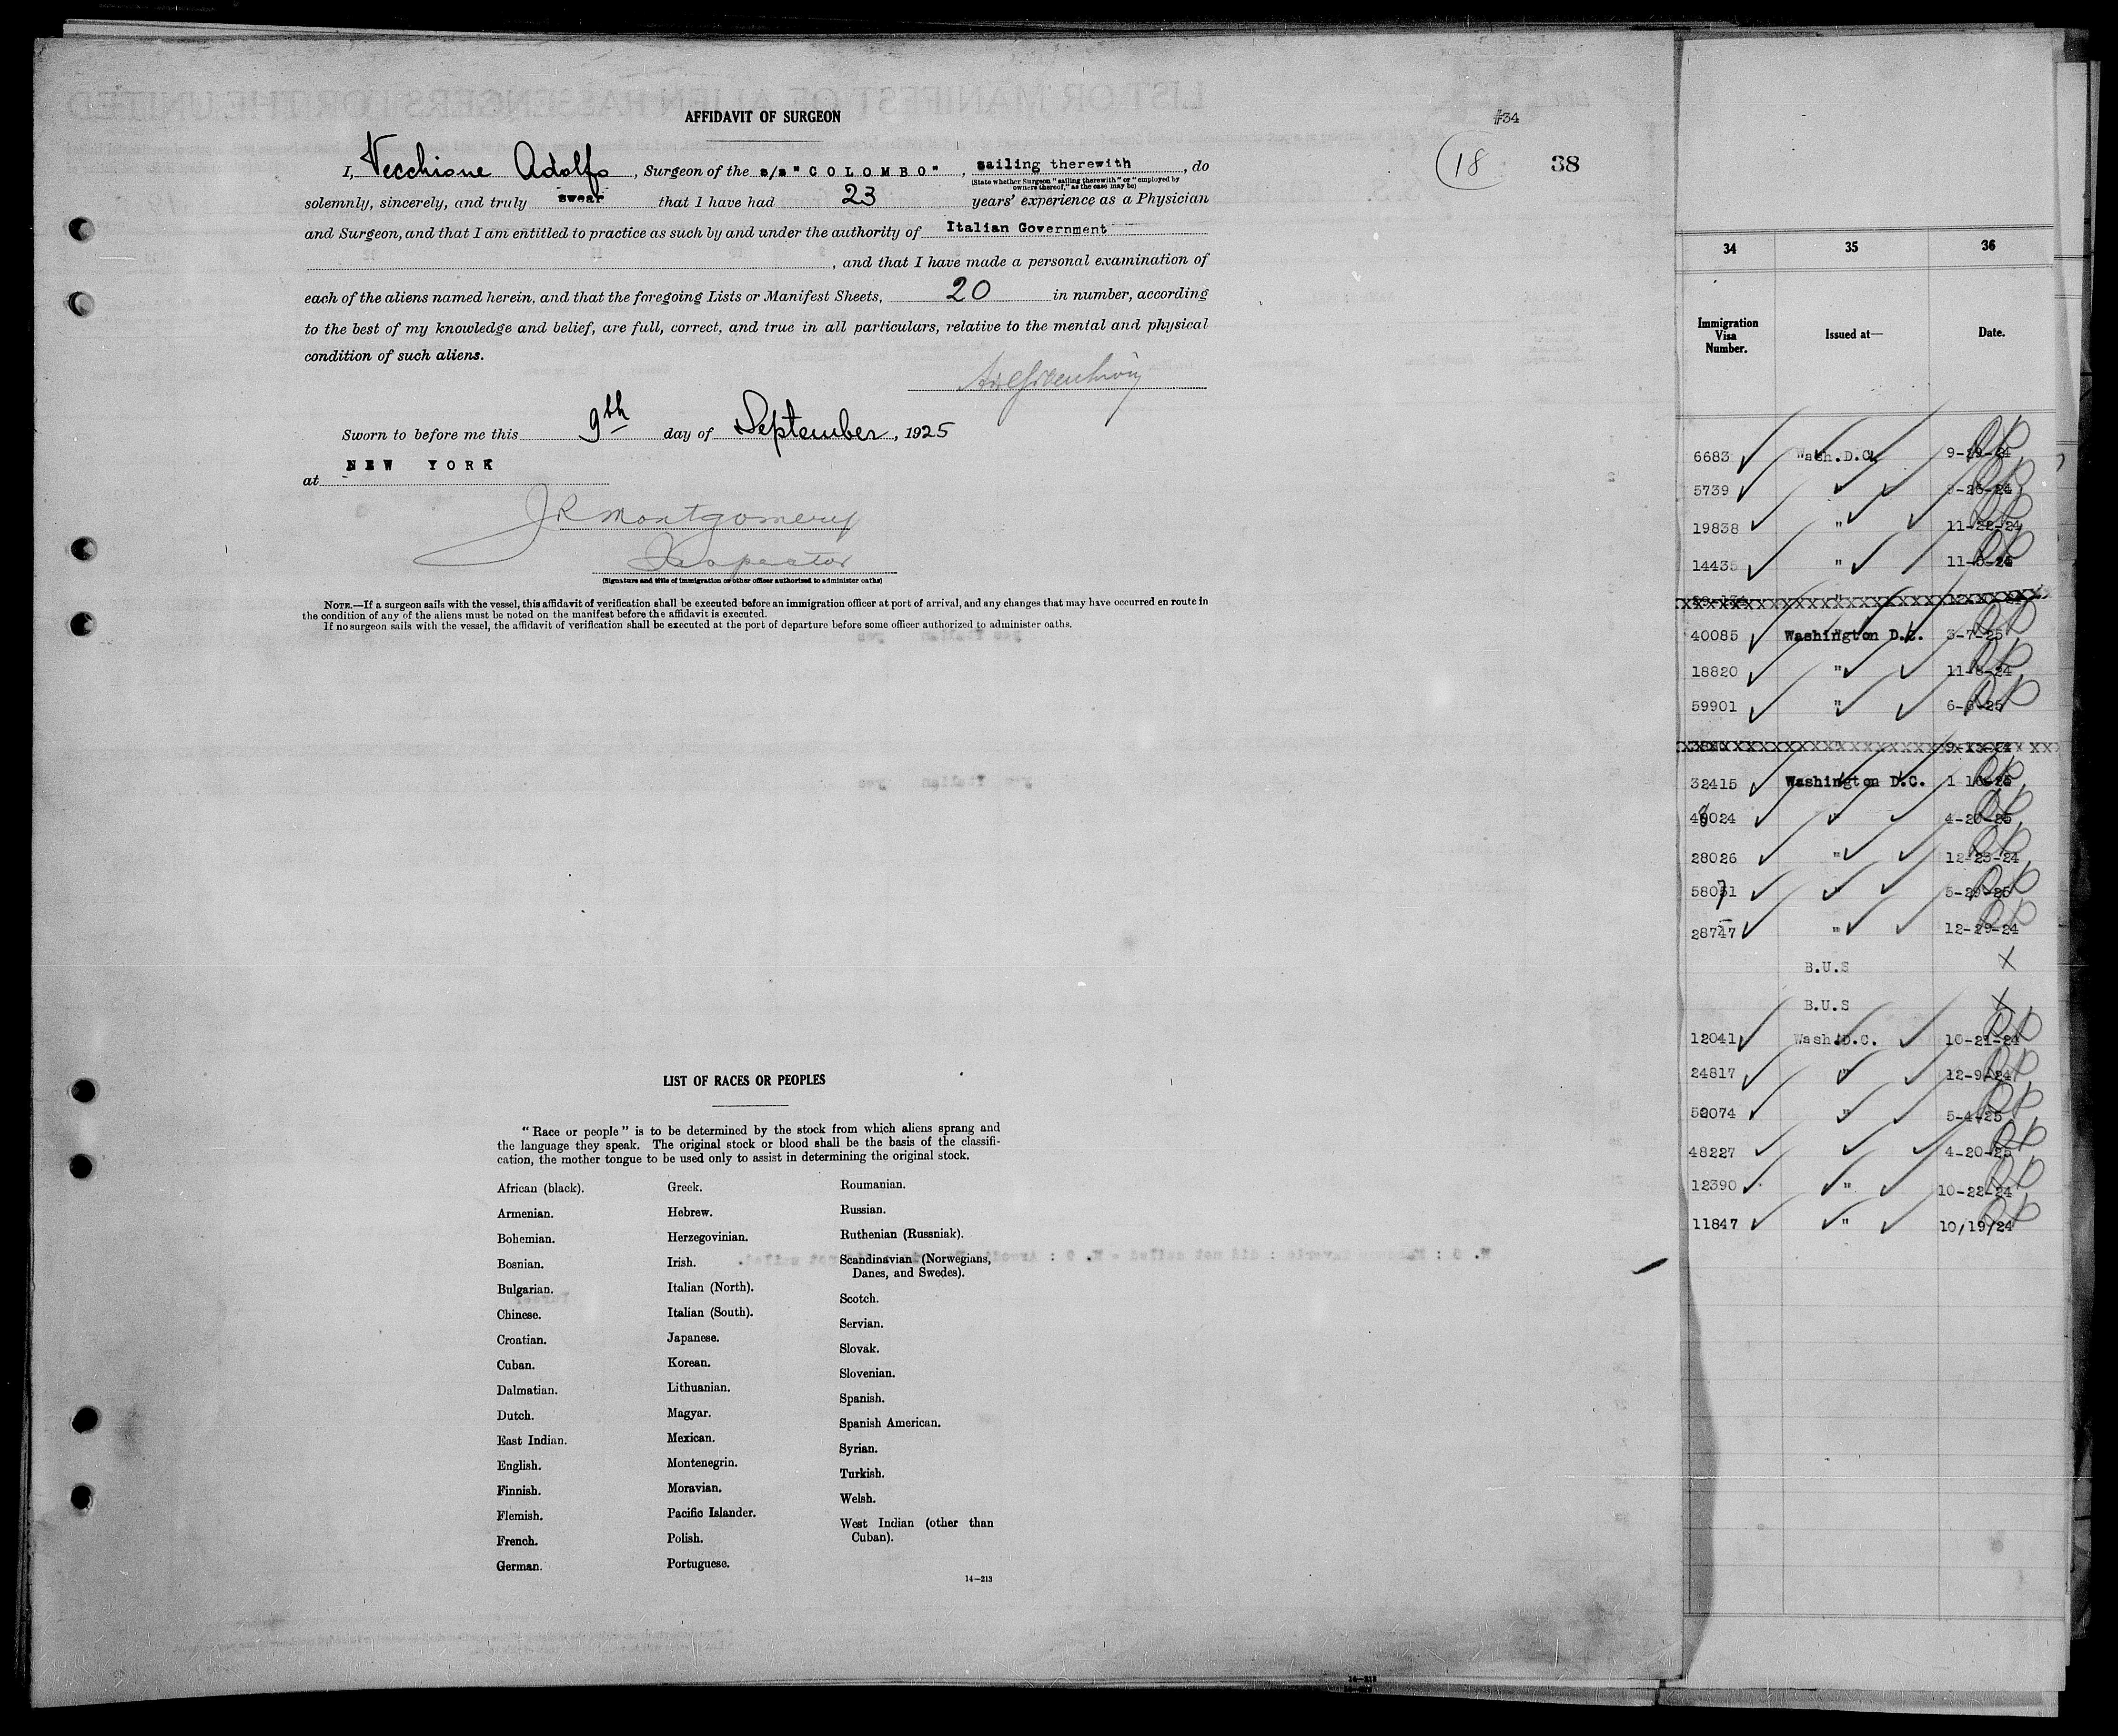 AFFIDAVIT OF SURGEON
#34
18
38
I, Vecchione Adolfo, Surgeon of the s/s "COLOMBO", sailing therewith, do
(State whether Surgeon "sailing therewith" or "employed by
owners thereof," as the case may be)
solemnly, sincerely, and truly swear that I have had 23 years' experience as a Physician
and Surgeon, and that I am entitled to practice as such by and under the authority of Italian Government
, and that I have made a personal examination of
each of the aliens named herein, and that the foregoing Lists or Manifest Sheets, 20 in number, according
to the best of my knowledge and belief, are full, correct, and true in all particulars, relative to the mental and physical
condition of such aliens.
Sworn to before me this 9th day of September, 1925
at NEW YORK
J R Montgomery
Inspector
(Signature and title of immigration or other officer authorized to administer oaths)
NOTE.—If a surgeon sails with the vessel, this affidavit of verification shall be executed before an immigration officer at port of arrival, and any changes that may have occurred en route in
the condition of any of the aliens must be noted on the manifest before the affidavit is executed.
If no surgeon sails with the vessel, the affidavit of verification shall be executed at the port of departure before some officer authorized to administer oaths.
LIST OF RACES OR PEOPLES
"Race or people" is to be determined by the stock from which aliens sprang and
the language they speak. The original stock or blood shall be the basis of the classifi-
cation, the mother tongue to be used only to assist in determining the original stock.
African (black).
Armenian.
Bohemian.
Bosnian.
Bulgarian.
Chinese.
Croatian.
Cuban.
Dalmatian.
Dutch.
East Indian.
English.
Finnish.
Flemish.
French.
German.
Greek.
Hebrew.
Herzegovinian.
Irish.
Italian (North).
Italian (South).
Japanese.
Korean.
Lithuanian.
Magyar.
Mexican.
Montenegrin.
Moravian.
Pacific Islander.
Polish.
Portuguese.
Roumanian.
Russian.
Ruthenian (Russniak).
Scandinavian (Norwegians,
Danes, and Swedes).
Scotch.
Servian.
Slovak.
Slovenian.
Spanish.
Spanish American.
Syrian.
Turkish.
Welsh.
West Indian (other than
Cuban).
14—213
34 35 36
Immigration
Visa
Number.
Issued at—
Date.
6683 Wash.D.C.
5739
19838 " 11-22-24
"
40085 Washington D.C. 3-7-25
18820 " 11-8-24
59901 " 6-6-25
32415 Washington D.C. 1 16-25
48024 " 4-20-25
28026 " 12-23-24
5-29-25
28747 " 12-29-24
B.U.S
B.U.S
12041 Wash.D.C. 10-21-24
24817 " 12-9-24
" 5-4-25
48227 4-20-25
12390 " 10-22-24
11847 " 10/19/24
14-213